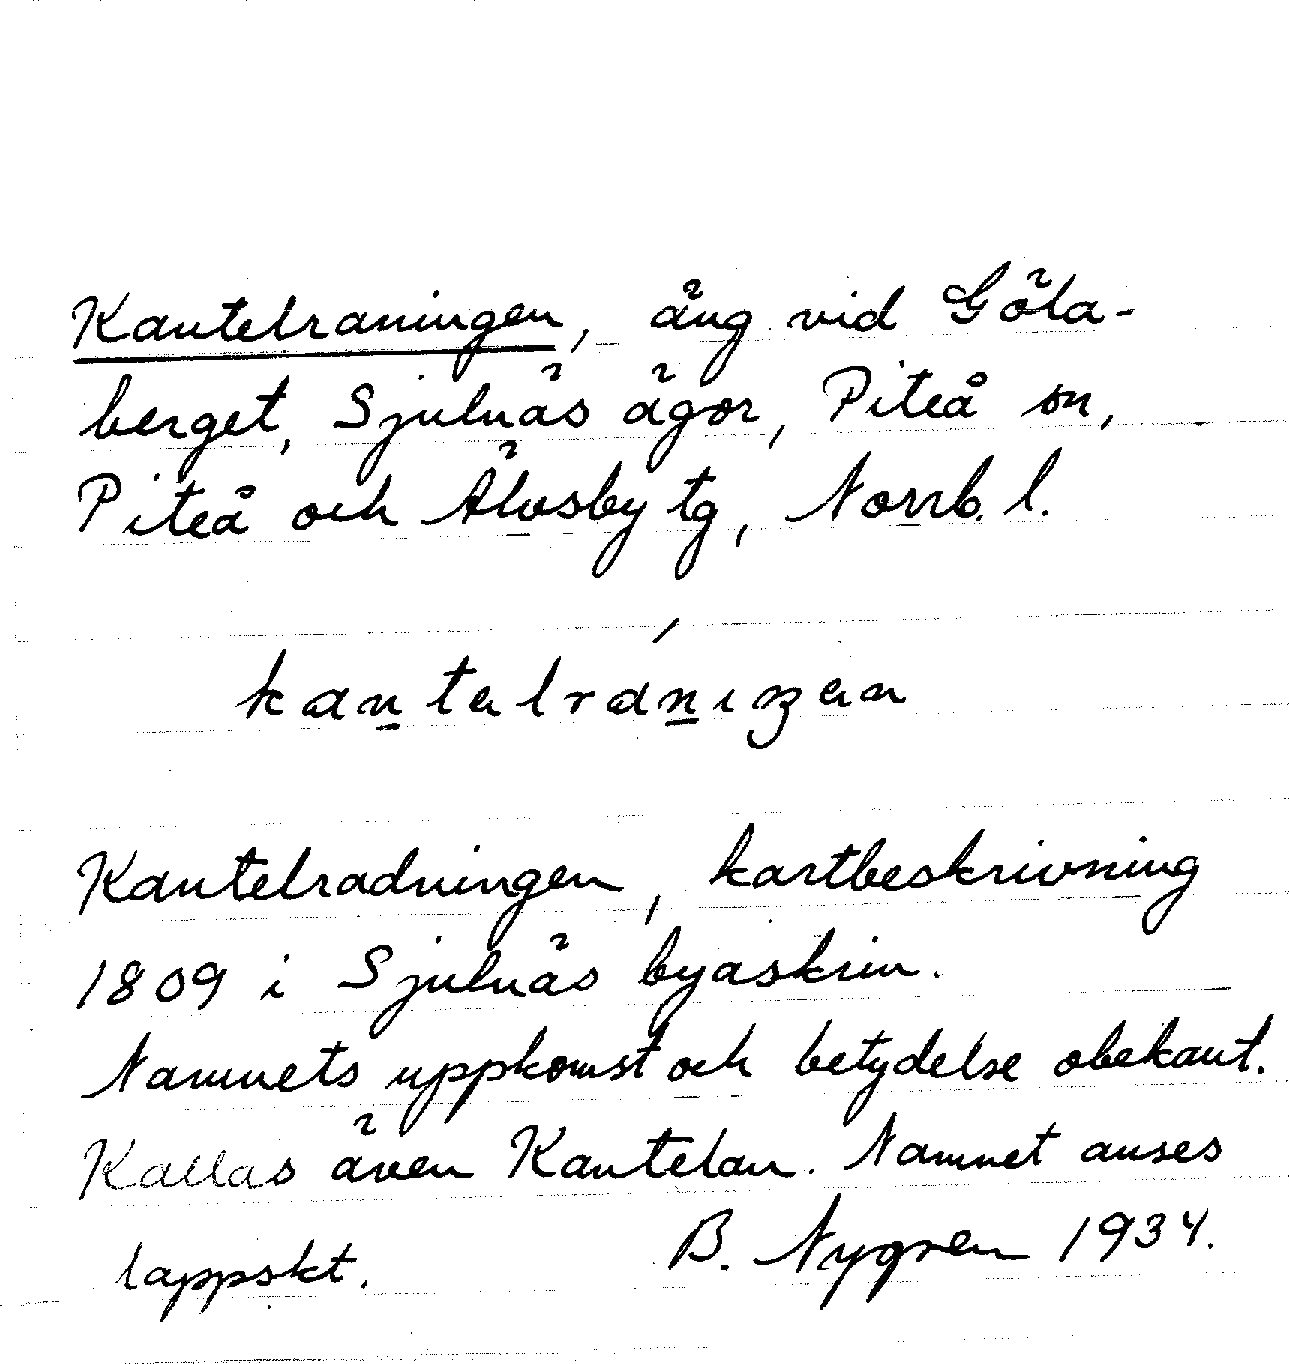 Kantelraningen, äng vid Göla-
berget, Sjulnäs ägor, Piteå sn,
Piteå och Älvsby tg, Norrb. l.
kantəlrániŋən
Kantelradningen, kartbeskrivning
1809 i Sjulnäs byaskrin.
Namnets uppkomst och betydelse obekant.
Kallas även Kantelan. Namnet anses
lappskt. B. Nygren 1934.